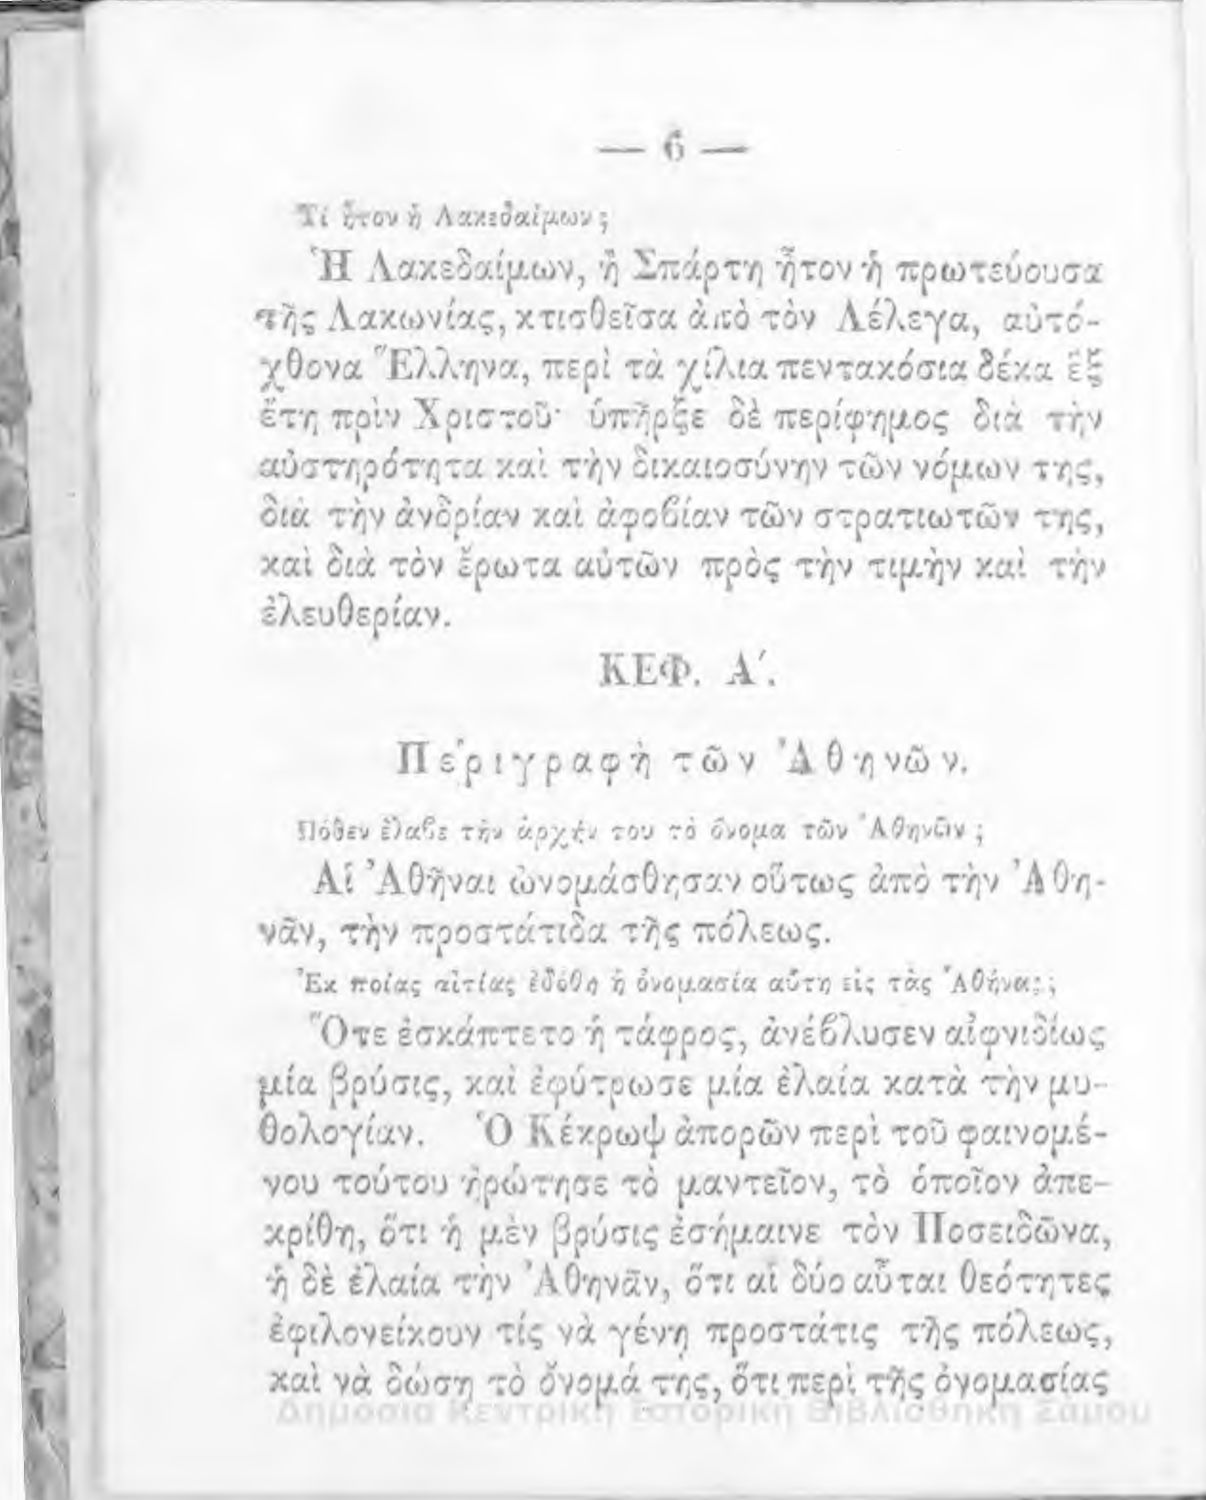 — 6 —
Τί ἦτον ἡ Λακεδαίμων;
Ἡ Λακεδαίμων, ἢ Σπάρτη ἦτον ἡ πρωτεύουσα
τῆς Λακωνίας, κτισθεῖσα ἀπὸ τὸν Λέλεγα, αὐτό-
χθονα Ἕλληνα, περὶ τὰ χίλια πεντακόσια δέκα ἓξ
ἔτη πρὶν Χριστοῦ· ὑπῆρξε δὲ περίφημος διὰ τὴν
αὐστηρότητα καὶ τὴν δικαιοσύνην τῶν νόμων της,
διὰ τὴν ἀνδρίαν καὶ ἀφοβίαν τῶν στρατιωτῶν της,
καὶ διὰ τὸν ἔρωτα αὐτῶν πρὸς τὴν τιμὴν καὶ τὴν
ἐλευθερίαν.
ΚΕΦ. Α΄.
Περιγραφὴ τῶν Ἀθηνῶν.
Πόθεν ἔλαβε τὴν ἀρχήν του τὸ ὄνομα τῶν Ἀθηνῶν;
Αἱ Ἀθῆναι ὠνομάσθησαν οὕτως ἀπὸ τὴν Ἀθη-
νᾶν, τὴν προστάτιδα τῆς πόλεως.
Ἐκ ποίας αἰτίας ἐδόθη ἡ ὀνομασία αὕτη εἰς τὰς Ἀθήνας;
Ὅτε ἐσκάπτετο ἡ τάφρος, ἀνέβλυσεν αἰφνιδίως
μία βρύσις, καὶ ἐφύτρωσε μία ἐλαία κατὰ τὴν μυ-
θολογίαν. Ὁ Κέκρωψ ἀπορῶν περὶ τοῦ φαινομέ-
νου τούτου ἠρώτησε τὸ μαντεῖον, τὸ ὁποῖον ἀπε-
κρίθη, ὅτι ἡ μὲν βρύσις ἐσήμαινε τὸν Ποσειδῶνα,
ἡ δὲ ἐλαία τὴν Ἀθηνᾶν, ὅτι αἱ δύο αὗται θεότητες
ἐφιλονείκουν τίς νὰ γένῃ προστάτις τῆς πόλεως,
καὶ νὰ δώσῃ τὸ ὄνομά της, ὅτι περὶ τῆς ὀνομασίας
Δημόσια Κεντρική Ιστορική Βιβλιοθήκη Σάμου